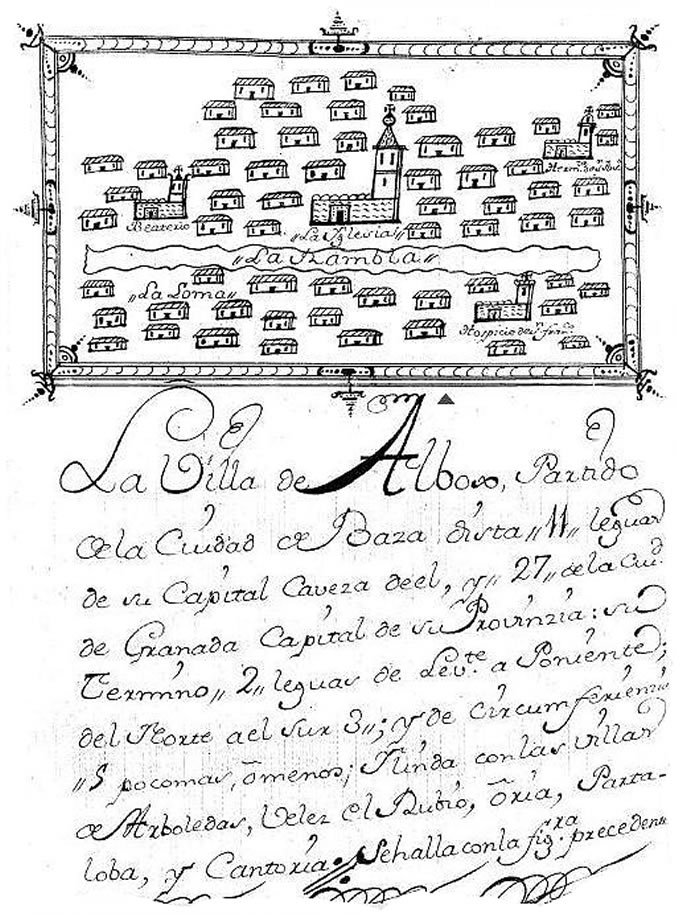 Beaterio
„La Yglesia„
„La Rambla„
„La Loma„
La Villa de Albox, Partido
de la Ciudad de Baza dista „11„ leguas
de su Capital Caveza de el, y „27„ de la Ciud.
de Granada Capital de su Provinzia: su
Termino „2„ leguas de Lev.te a Poniente;
del Norte ael Sur 3„; y de circumferienzia
„5 poco mas, õ menos; Linda con las villas
de Arboledas, Velez el Rubio, Õria, Parta-
loba, y Cantoria. Se halla con la fig.ra preceden